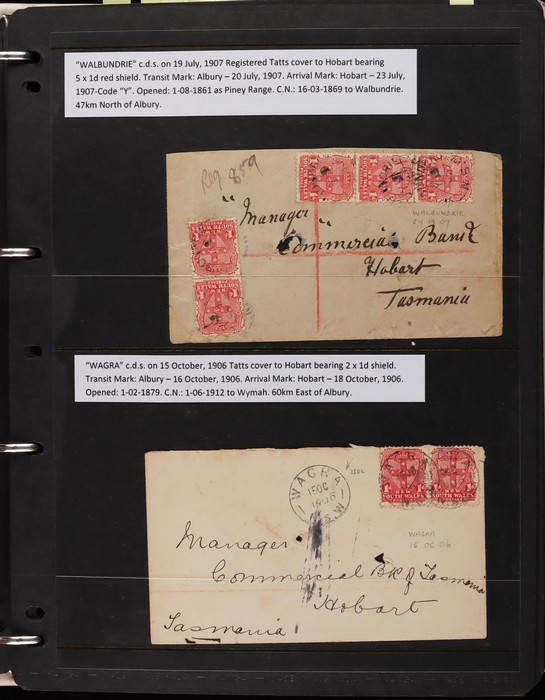 "WALBUNDRIE" c.d.s. on 19 July, 1907 Registered Tatts cover to Hobart bearing
5 x 1d red shield. Transit Mark: Albury – 20 July, 1907. Arrival Mark: Hobart – 23 July,
1907-Code "Y". Opened: 1-08-1861 as Piney Range. C.N.: 16-03-1869 to Walbundrie.
47km North of Albury.
Reg 859
"Manager"
Commercial Bank
Hobart
Tasmania
WALBUNDRIE
"WAGRA" c.d.s. on 15 October, 1906 Tatts cover to Hobart bearing 2 x 1d shield.
Transit Mark: Albury – 16 October, 1906. Arrival Mark: Hobart – 18 October, 1906.
Opened: 1-02-1879. C.N.: 1-06-1912 to Wymah. 60km East of Albury.
WAGRA
15 OC
1906
N.S.W
SOUTH WALES
SOUTH WALES
WAGRA
15 OC 06
Manager
Commercial Bk of Tasmania
Hobart
Tasmania